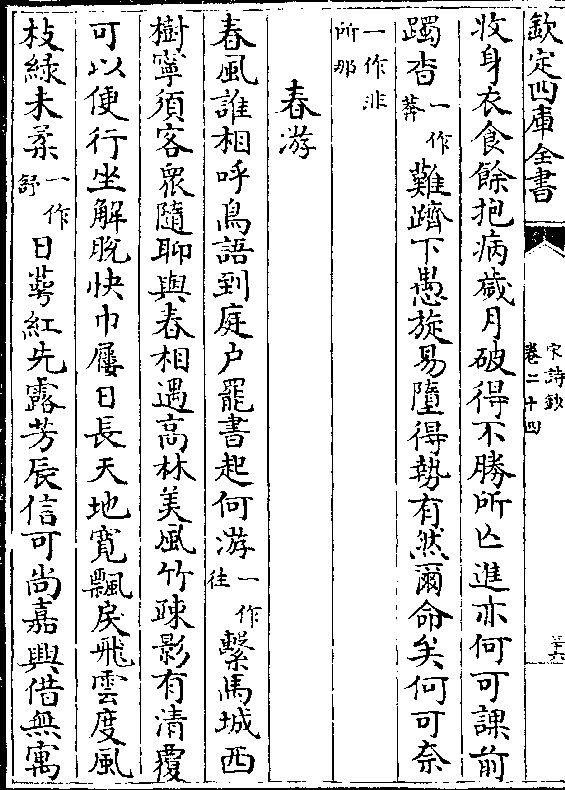 欽定四庫全書
宋詩鈔
卷二十四
三六
收身衣食餘抱病歲月破得不勝所亾進亦何可課前
躅杳一作莾難躋下愚旋易墮得執有然爾命矣何可奈
一作非所那
春游
春風誰相呼鳥語到庭户罷書起何游一作往繫馬城西
樹寧須客衆隨聊與春相遇高林美風竹疎影有清覆
可以便行坐解脫快巾屨日長天地寛飄戾飛雲度風
枝緑未柔一作舒日萼紅先露芳辰信可尚嘉興借無寓